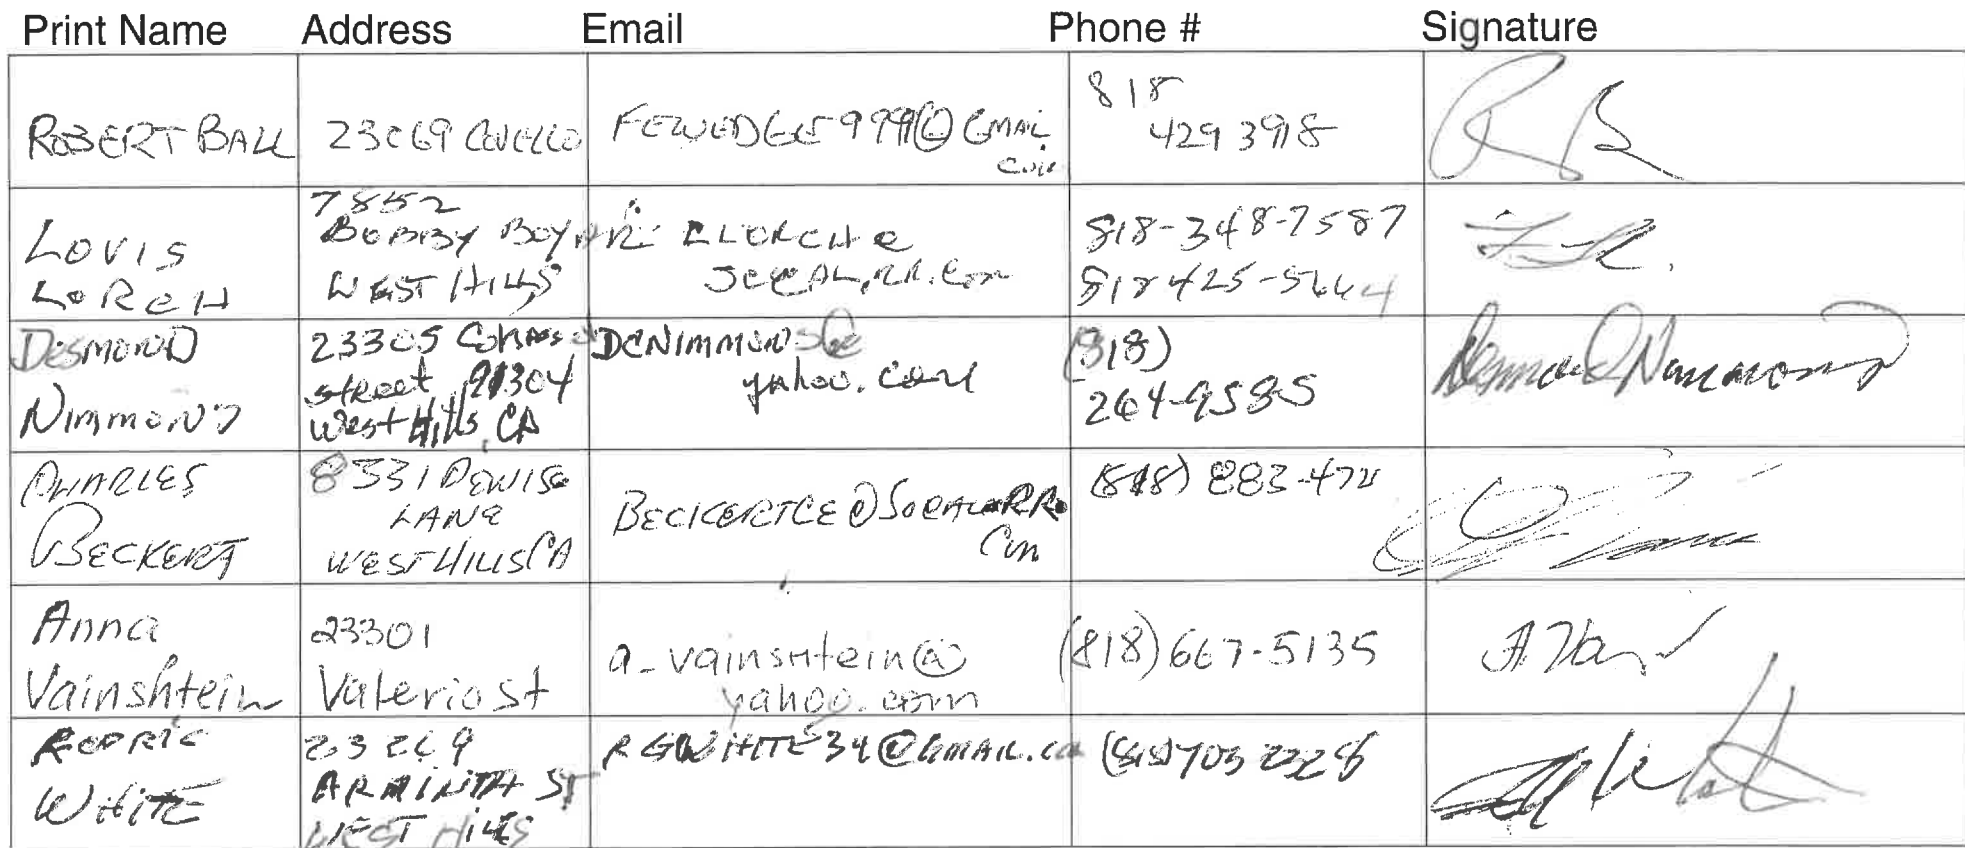 Print Name Address Email Phone # Signature
ROBERT BALL
23069 COVELLO
@GMAIL
818
429 3918
LOVIS
LORCH
7852
BOBBY BOYAR
WEST HILLS
LLORCH@
SOCAL.RR.Com
818-348-7587
818 425-5644
DESMOND
NIMMOND
23305 Cohasset
street 91304
West Hills, CA
DCNIMMONDS@
yahoo.com
(818)
264-9585
Desmond Nimmond
CHARLES
BECKERT
8331 DENISE
LANE
WEST HILLS CA
BECKERTCE@SOCAL.RR.
Com
(818) 883-474
Anna
Vainshtein
23301
Valerio St
a_vainshtein@
yahoo.com
(818) 667-5135
REDRIC
WHITE
23269
ARMINTA ST
WEST HILLS
RGWHITE34@GMAIL.co
(818) 703 2228